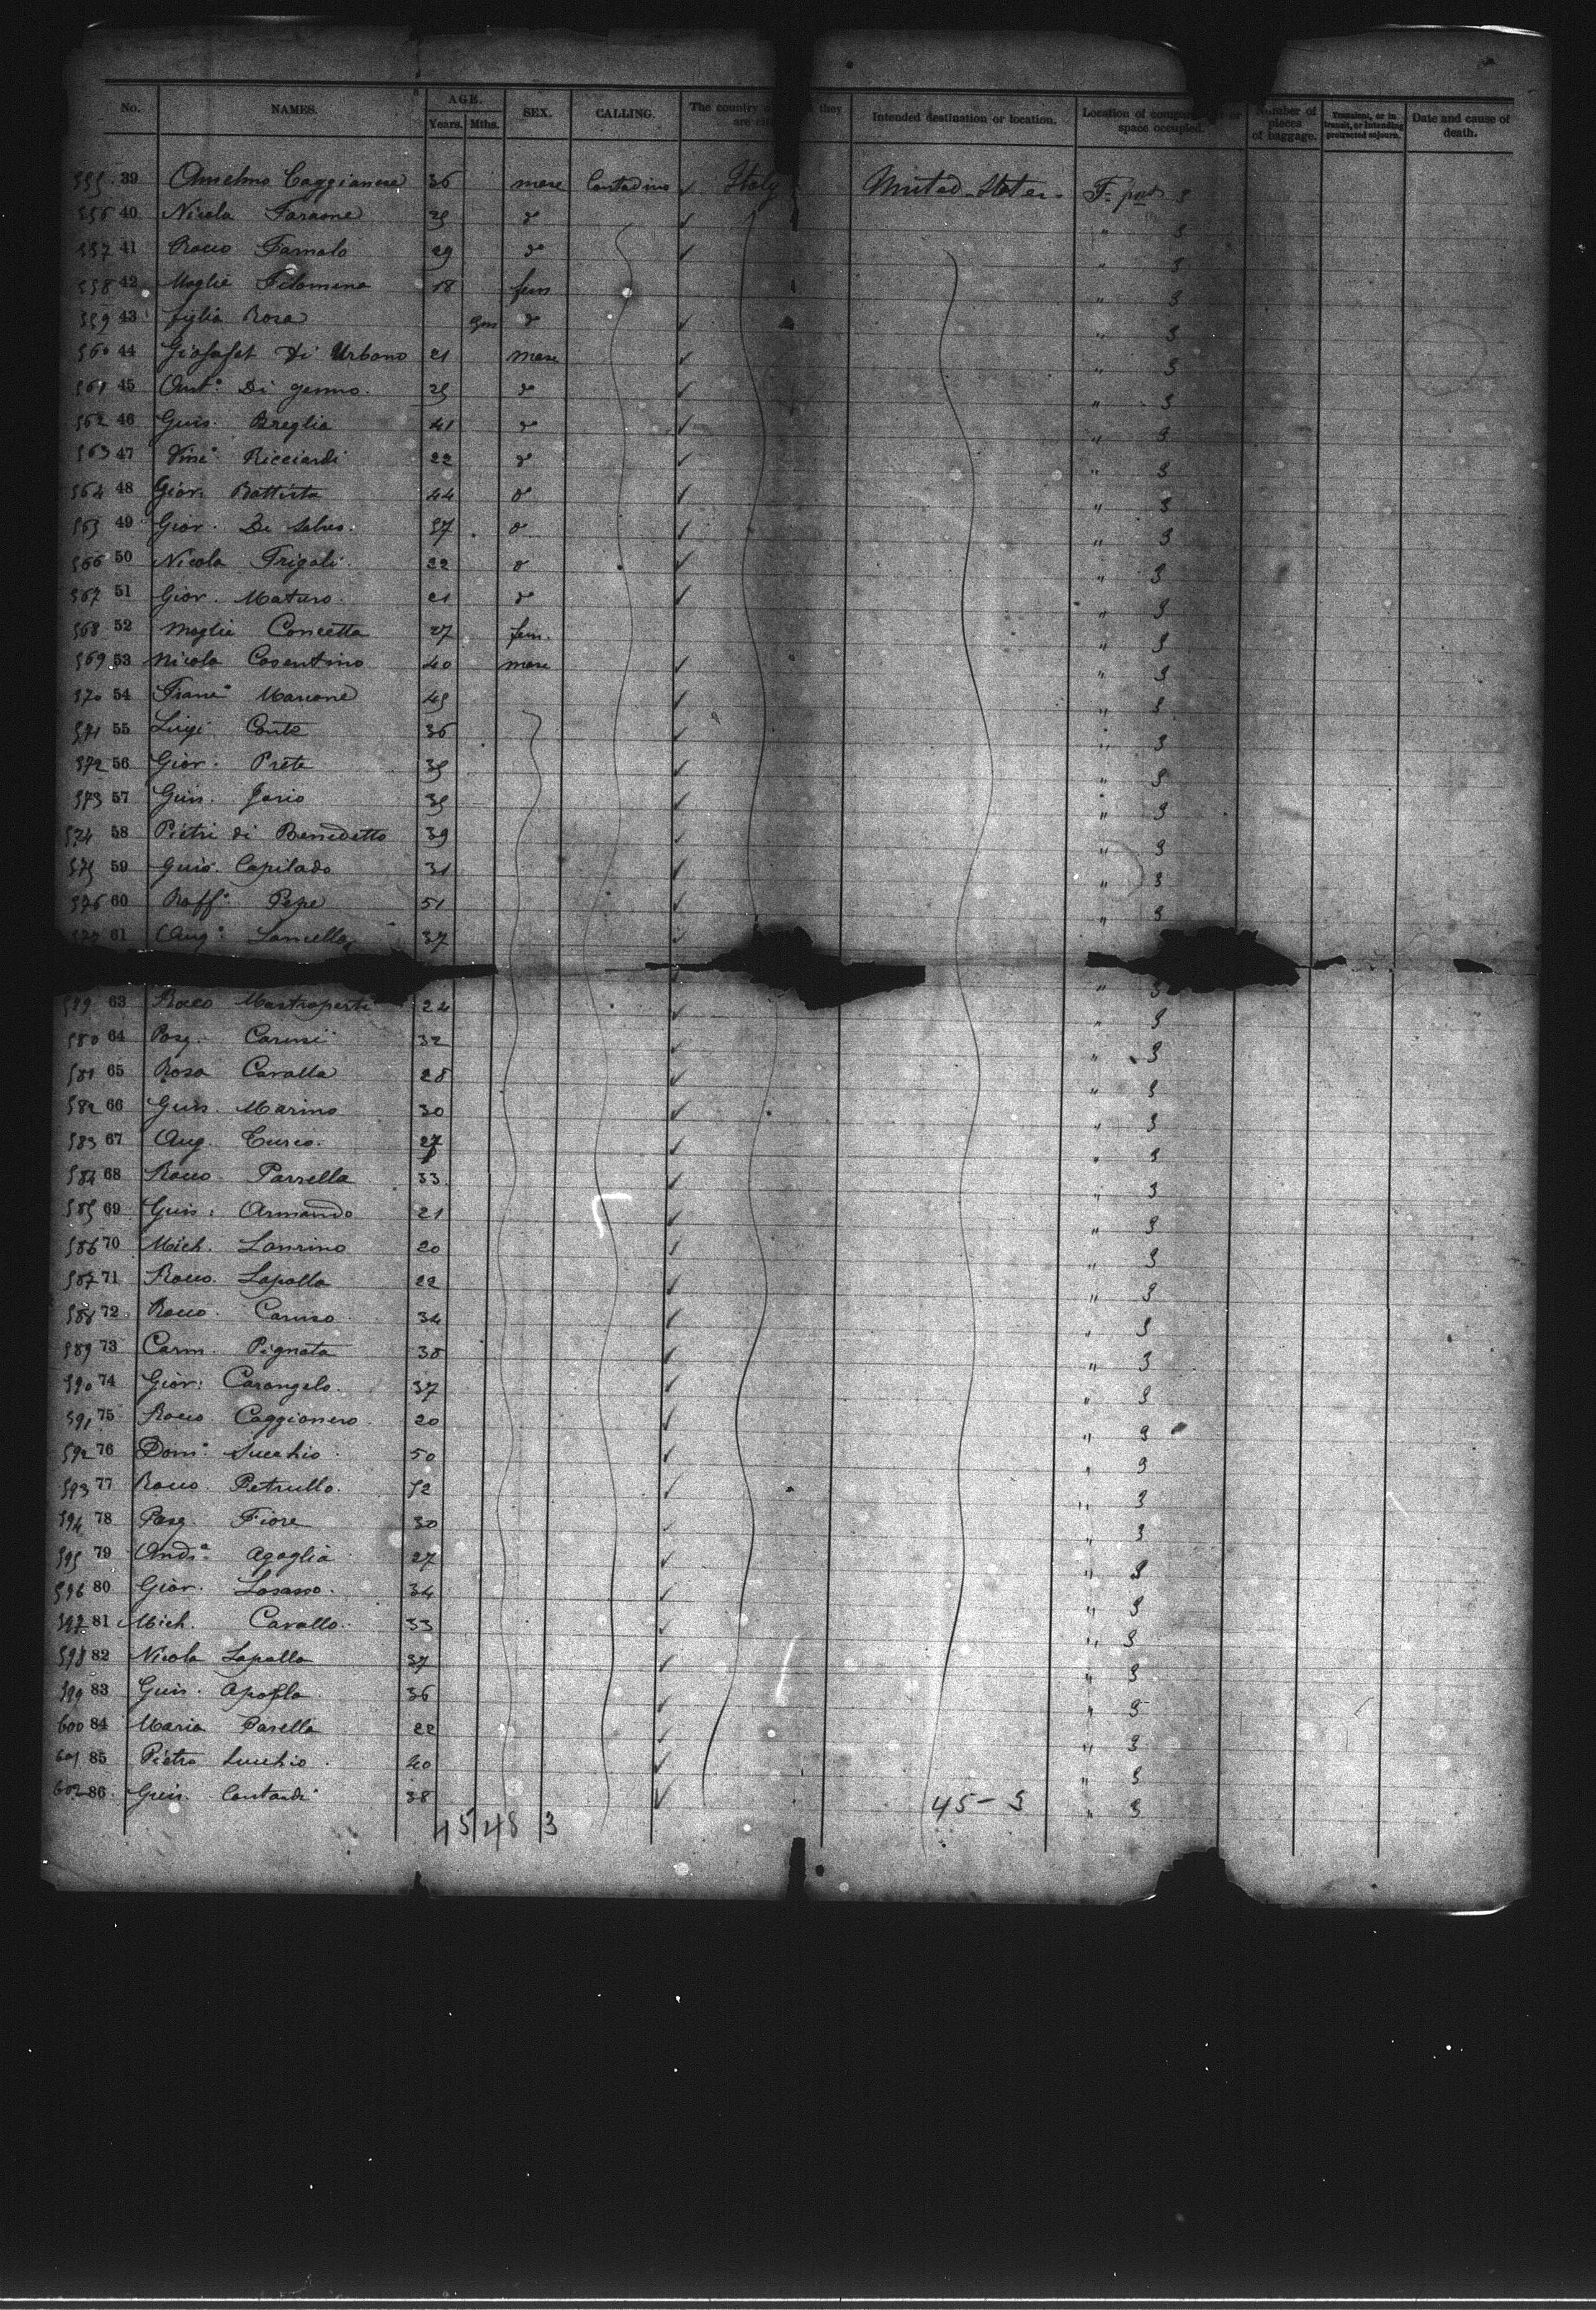 No. NAMES. AGE. Years. Mths. SEX. CALLING. The country they are Intended destination or location. Location of space occupied. Number of pieces of baggage. Transient, or in transit, or intending protracted sojourn. Date and cause of death.
555 39 Anselmo Caggianese 36 Contadino Italy United States
556 40 Nicola Faraone 25
557 41 Rocco 29
558 42 Moglie Filomena 18 fem
559 43 figlia Rosa
560 44 Giosafat Di Urbano 21 " 3
561 45 Ant° Di 25 " 3
562 46 Guis. Breglia 41 " 3
563 47 Ricciardi 22 " 3
564 48 Giov. Battista 44 " 3
565 49 Giov. 37 " 3
566 50 Nicola Frigoli 22 " 3
567 51 Giov. Maturo 21 " 3
568 52 moglie Concetta 27 fem. " 3
569 53 Nicola Cosentino 40 " 3
570 54 Marrone 45 " 3
571 55 Luigi Conte 36 " 3
572 56 Giov. Prete 35 " 3
573 57 Guis. Jorio 35 " 3
574 58 Pietri di Benedetto 39 " 3
575 59 Guis. Capilado 31 " 3
576 60 Raff° Pepe 51 " 3
61 Ang° Lancella 37
63 Rocco 24 " 3
580 64 Pasq. 32 " 3
581 65 Rosa Cavalla 28 " 3
582 66 Guis. Marino 30 " 3
583 67 Ang. Turco. 27 " 3
584 68 Rocco Parrella 33 " 3
585 69 Guis. Armando 21 " 3
586 70 Mich. Laurino 20 " 3
587 71 Rocco. Lapolla 22 " 3
588 72 Rocco Caruso 34 " 3
589 73 Carm. Pignata 38 " 3
590 74 Giov. Carangelo. 37 " 3
591 75 Rocco Caggianero 20 " 3
592 76 Dom° 50 " 3
593 77 Rocco. Petrullo. 52 " 3
594 78 Pasq. Fiore 30 " 3
595 79 Agoglia 27 " 3
596 80 Giov. Losasso. 34 " 3
597 81 Mich. Cavallo. 33 " 3
598 82 Nicola Lapolla 37 " 3
599 83 Guis. 36 "
600 84 Maria Parella 22 " 3
601 85 Pietro 40 " 3
602 86 Guis. Contardi 38 " 3
45 48 3 45 - 3